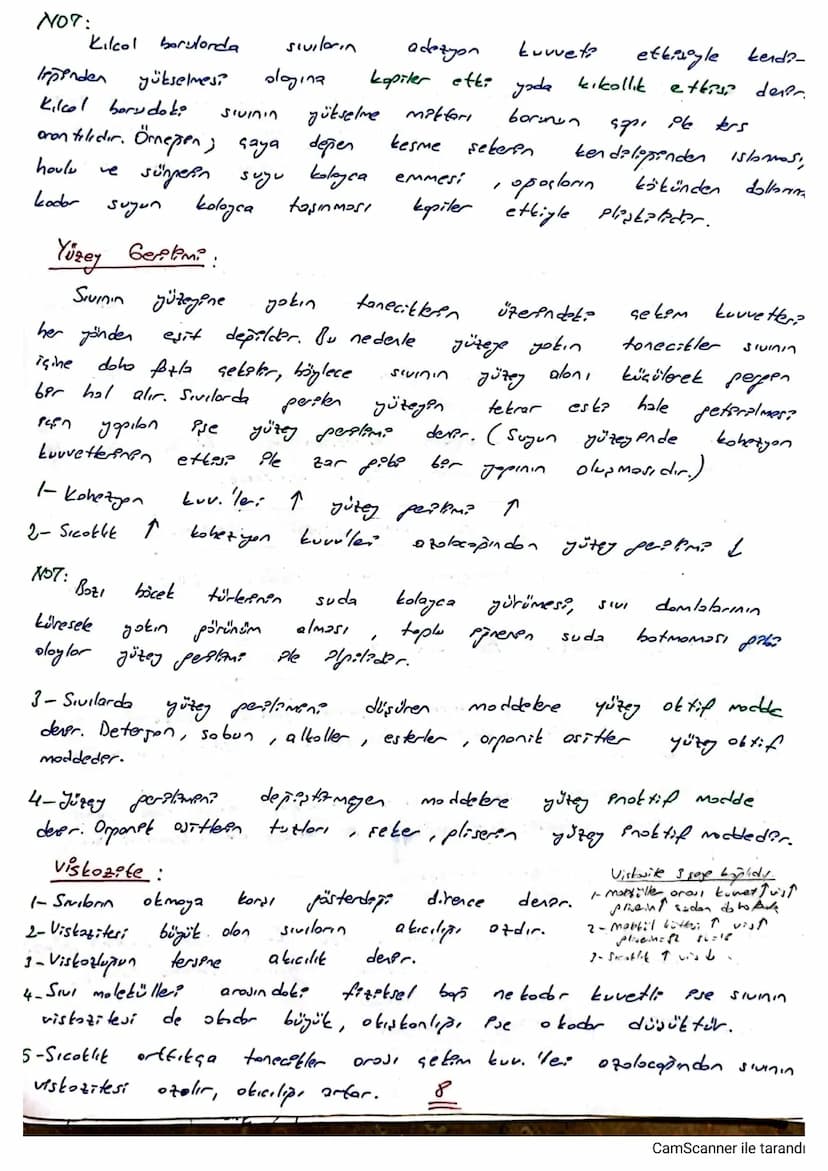 NOT:
Kılcal borularda sıvıların adezyon kuvveti etkisiyle kendi-
liğinden yükselmesi olayına kapiler etki yada kılcallık etkisi denir.
Kılcal borudaki sıvının yükselme miktarı borunun çapı ile ters
orantılıdır. Örneğin; çaya değen kesme şekerin kendiliğinden ıslanması,
havlu ve süngerin suyu kolayca emmesi, ağaçların kökünden dallarına
kadar suyun kolayca taşınması kapiler etkiyle ilişkilidir.
Yüzey Gerilimi:
Sıvının yüzeyine yakın taneciklerin üzerindeki çekim kuvvetleri
her yönden eşit değildir. Bu nedenle yüzeye yakın tanecikler sıvının
içine daha fazla çekilir, böylece sıvının yüzey alanı küçülerek gergin
bir hal alır. Sıvılarda gerilen yüzeyin tekrar eski hale getirilmesi
için yapılan işe yüzey gerilimi denir. (Suyun yüzeyinde kohezyon
kuvvetlerinin etkisi ile zar gibi bir yapının oluşmasıdır.)
1- Kohezyon kuv.'leri ↑ yüzey gerilimi ↑
2- Sıcaklık ↑ kohezyon kuvv'leri azalacağından yüzey gerilimi ↓
NOT:
Bazı böcek türlerinin suda kolayca yürümesi, sıvı damlalarının
küresele yakın görünüm alması, toplu iğnenin suda batmaması gibi
olaylar yüzey gerilimi ile ilgilidir.
3- Sıvılarda yüzey gerilimini düşüren maddelere yüzey aktif madde
denir. Deterjan, sabun, alkoller, esterler, organik asitler yüzey aktif
maddedir.
4- Yüzey gerilimini değiştirmeyen maddelere yüzey inaktif madde
denir. Organik asitlerin tuzları, şeker, gliserin yüzey inaktif maddedir.
Viskozite:
1- Sıvıların akmaya karşı gösterdiği dirence denir.
2- Viskozitesi büyük olan sıvıların akıcılığı azdır.
3- Viskozluğun tersine akıcılık denir.
4- Sıvı molekülleri arasındaki fiziksel bağ ne kadar kuvvetli ise sıvının
viskozitesi de o kadar büyük, akışkanlığı ise o kadar düşüktür.
5- Sıcaklık arttıkça tanecikler arası çekim kuv.'leri azalacağından sıvının
viskozitesi azalır, akıcılığı artar.
Viskozite 3 şeye bağlıdır
1- moleküller arası kuvvet ↑ vis ↑
2- molekül ↑ vis ↑
3- Sıcaklık ↑ vis ↓
8
CamScanner ile tarandı